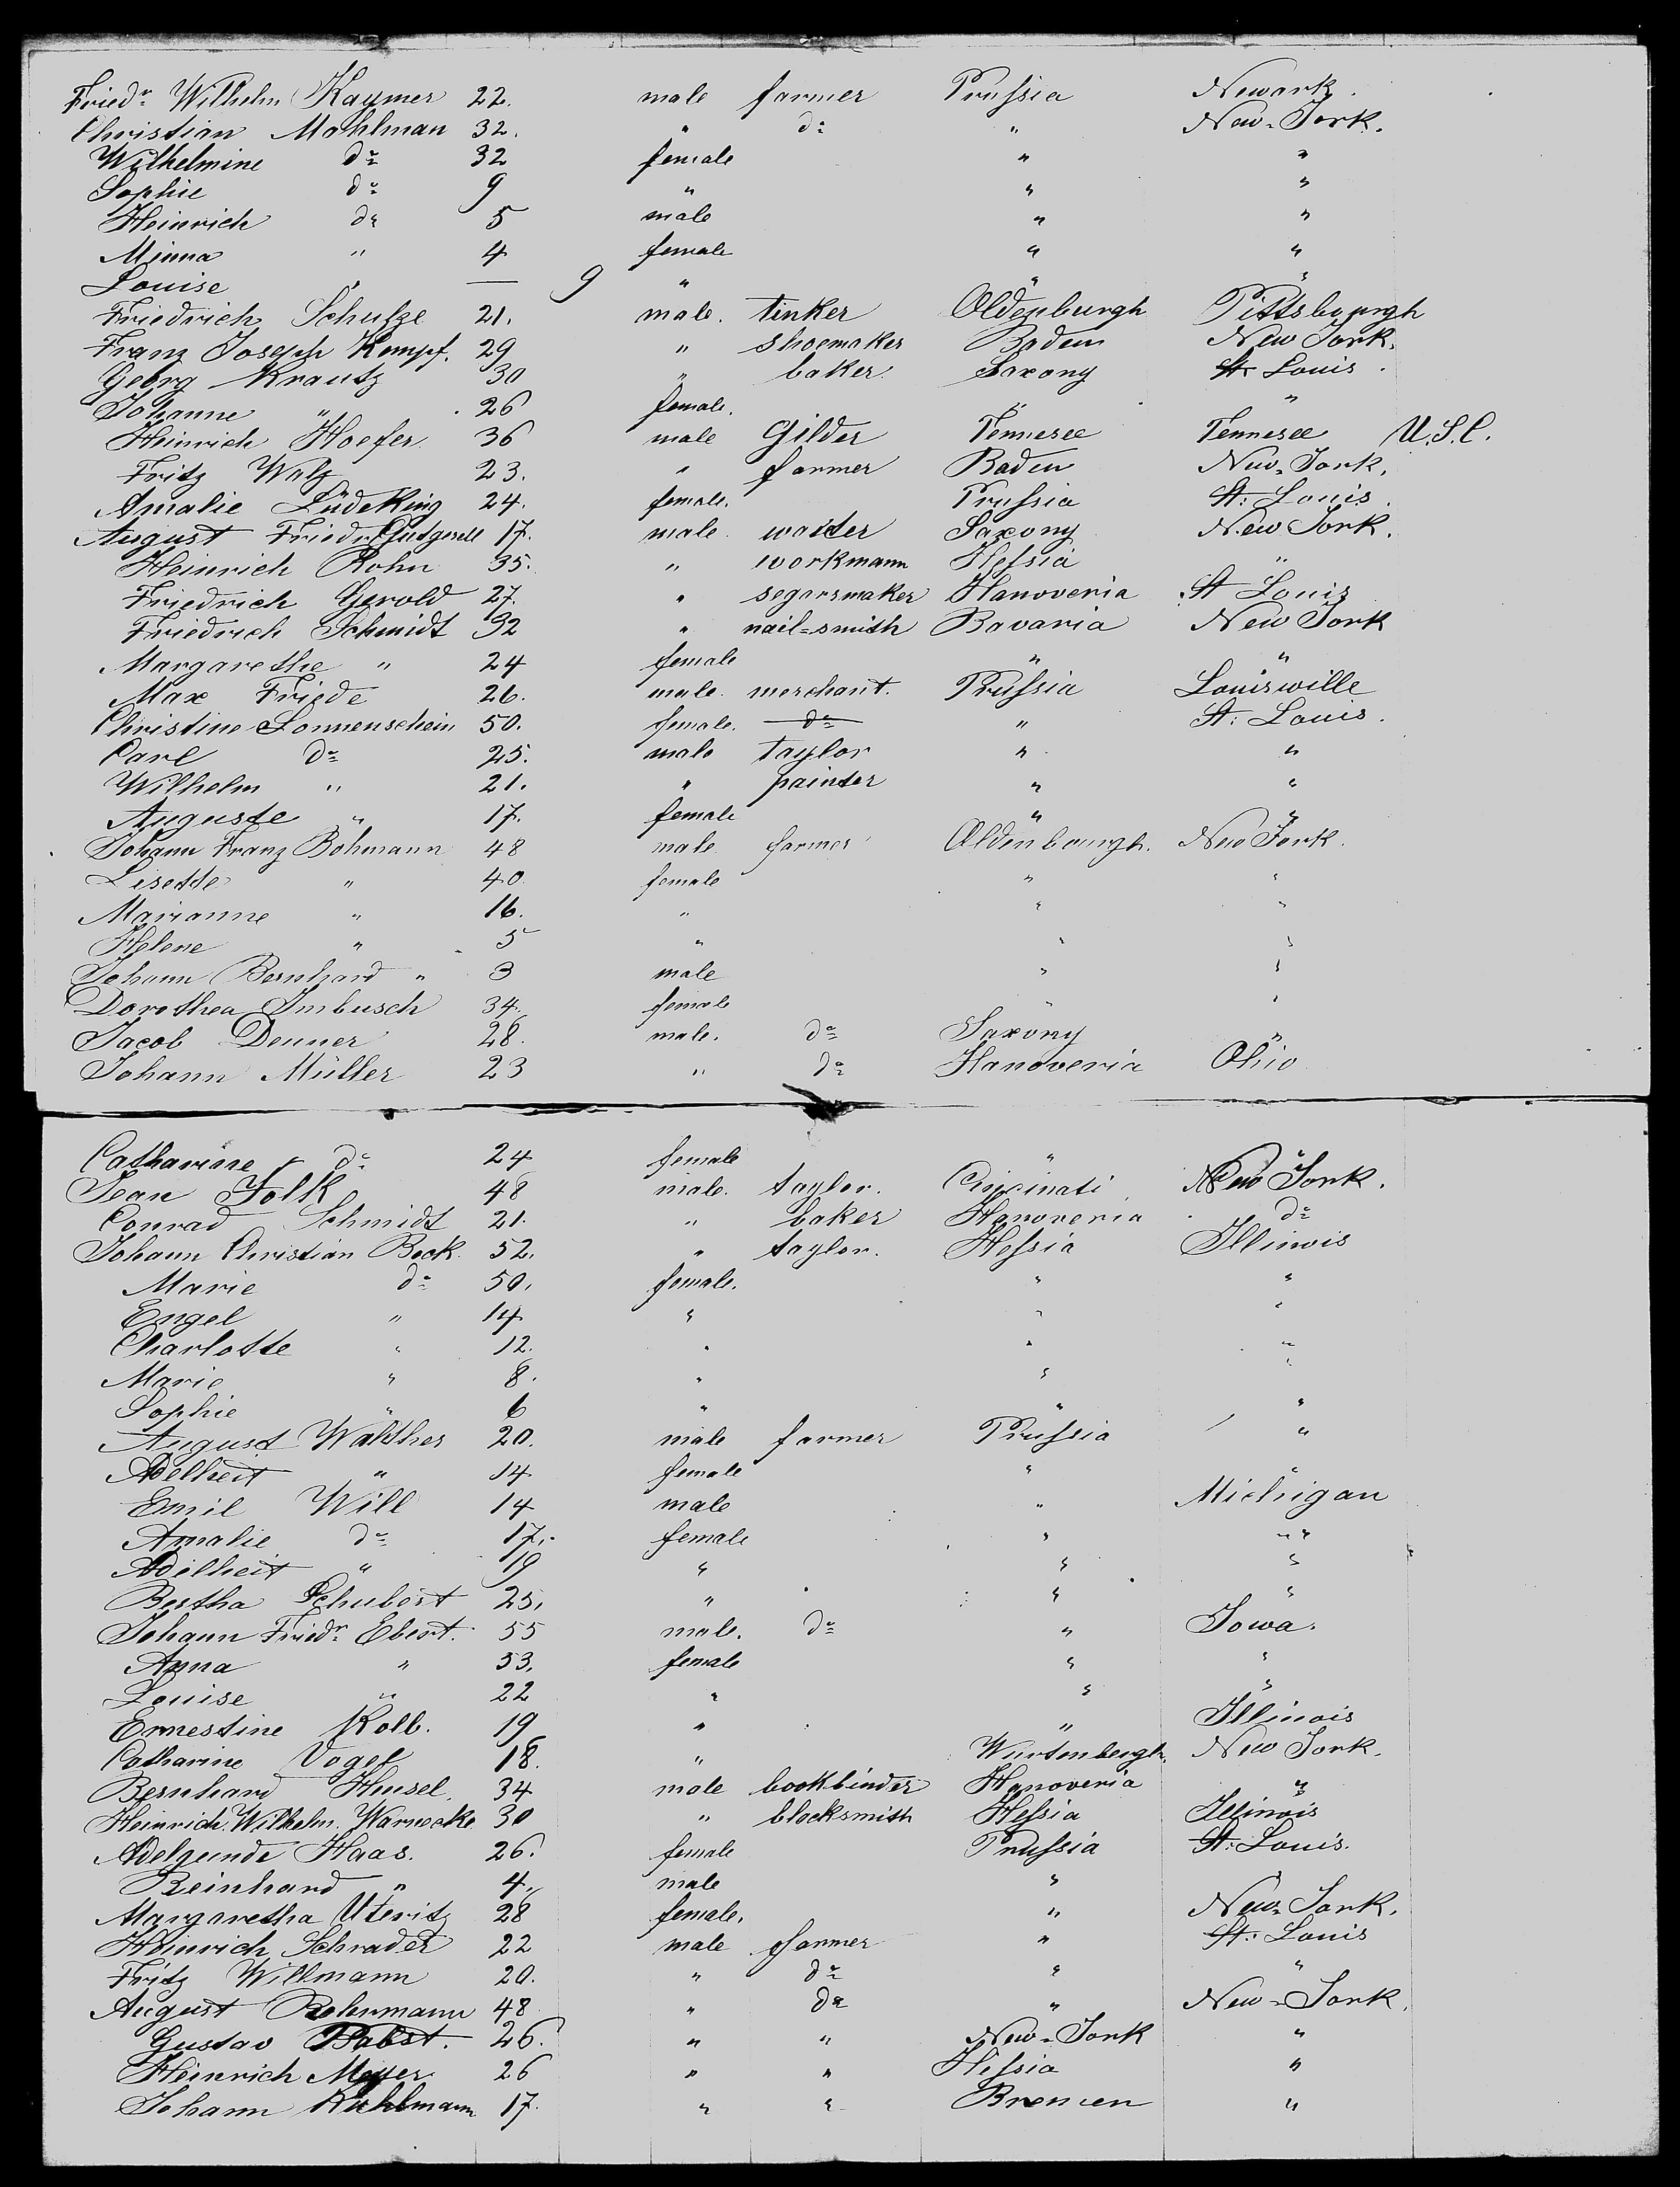 Friedr. Wilhelm Kaymer 22. male farmer Prussia Newark.
Christian Mahlman 32. " do " New-York.
Wilhelmine do 32 female " "
Sophie do 9 " " "
Heinrich do 5 male " "
Minna " 4 female " "
Louise " — 9 " " "
Friedrich Schulze 21. male. tinker Oldenburgh Pittsbourgh
Franz Joseph Kempf. 29 " shoemaker Baden New York.
Georg Krautz 30 " baker Saxony St Louis.
Johanne " 26 female. " "
Heinrich Hoefer 36 male Gilder Tennesee Tennesee U.S.C.
Fritz Walz 23. " farmer Baden New-York.
Amalie Lüdeking 24. female. Prussia St: Louis.
August Friedr. Gutgesell 17. male waiter Saxony New York.
Heinrich Rohn 35. " workmann Hessia "
Friedrich Gerold 27. " segarsmaker Hanoveria St Louis
Friedrich Schmidt 32 " nail-smith Bavaria New York
Margarethe " 24 female " "
Max Friede 26. male. merchant. Prussia Louiswille
Christine Sonnenschein 50. female. do " St: Louis.
Carl do 25. male taylor " "
Wilhelm " 21. " painter " "
Auguste " 17. female " "
Johann Franz Bohmann 48 male farmer Oldenbourgh. New York.
Lisette " 40. female " "
Marianne " 16. " " "
Helene " 5 " " "
Johann Bernhard " 3 male " "
Dorothea Imbusch 34. female " "
Jacob Denner 28. male. do Saxony "
Johann Müller 23 " do Hanoveria Ohio
Catharine do 24 female " "
Jean Folk 48 male. taylor. Cincinati New York.
Conrad Schmidt 21. " baker Hanoveria do
Johann Christian Bock. 52. " taylor. Hessia Illinois
Marie do 50. female. " "
Engel " 14 " " "
Charlotte " 12. " " "
Marie " 8. " " "
Sophie " 6 " " "
August Walther 20. male farmer Prussia "
Adelheit " 14 female " "
Emil Will 14 male " Michigan
Amalie do 17. female " "
Adelheit " 19 " " "
Bertha Schubert 25. " " "
Johann Friedr. Ebert. 55 male. do " Iowa.
Anna " 53. female " "
Louise " 22 " " "
Ernestine Kolb. 19 " " Illinois
Catharine Vogel 18. " Wurtenbergh. New York.
Bernhard Hensel. 34 male bookbinder Hanoveria "
Heinrich Wilhelm Warnecke 30 " blocksmith Hessia Illinois
Adelgunde Haas. 26. female Prussia St: Louis.
Reinhard " 4. male " "
Margaretha Uteritz 28 female. " New-York.
Heinrich Schrader 22 male farmer " St: Louis
Fritz Willmann 20. " do " "
August Bohnmann 48 " do " New-York.
Gustav Pabst. 26. " " New-York "
Heinrich Meyer 26 " " Hessia "
Johann Kuhlmann 17. " " Bremen "